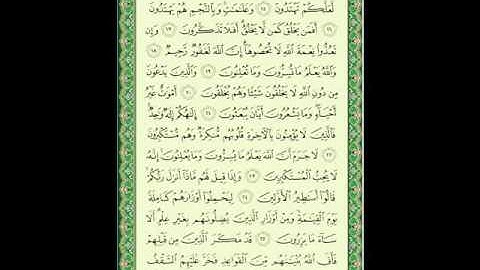 لَّعَلَّكُمْ تَهْتَدُونَ ١٥ وَعَلَٰمَٰتٍ وَبِٱلنَّجْمِ هُمْ يَهْتَدُونَ
١٦ أَفَمَن يَخْلُقُ كَمَن لَّا يَخْلُقُ أَفَلَا تَذَكَّرُونَ ١٧ وَإِن
تَعُدُّوا۟ نِعْمَةَ ٱللَّهِ لَا تُحْصُوهَآ إِنَّ ٱللَّهَ لَغَفُورٌ رَّحِيمٌ ١٨
وَٱللَّهُ يَعْلَمُ مَا تُسِرُّونَ وَمَا تُعْلِنُونَ ١٩ وَٱلَّذِينَ يَدْعُونَ
مِن دُونِ ٱللَّهِ لَا يَخْلُقُونَ شَيْـًٔا وَهُمْ يُخْلَقُونَ ٢٠ أَمْوَٰتٌ غَيْرُ
أَحْيَآءٍ وَمَا يَشْعُرُونَ أَيَّانَ يُبْعَثُونَ ٢١ إِلَٰهُكُمْ إِلَٰهٌ وَٰحِدٌ
فَٱلَّذِينَ لَا يُؤْمِنُونَ بِٱلْءَاخِرَةِ قُلُوبُهُم مُّنكِرَةٌ وَهُم مُّسْتَكْبِرُونَ
٢٢ لَا جَرَمَ أَنَّ ٱللَّهَ يَعْلَمُ مَا يُسِرُّونَ وَمَا يُعْلِنُونَ إِنَّهُۥ
لَا يُحِبُّ ٱلْمُسْتَكْبِرِينَ ٢٣ وَإِذَا قِيلَ لَهُم مَّاذَآ أَنزَلَ رَبُّكُمْ
قَالُوٓا۟ أَسَٰطِيرُ ٱلْأَوَّلِينَ ٢٤ لِيَحْمِلُوٓا۟ أَوْزَارَهُمْ كَامِلَةً
يَوْمَ ٱلْقِيَٰمَةِ وَمِنْ أَوْزَارِ ٱلَّذِينَ يُضِلُّونَهُم بِغَيْرِ عِلْمٍ أَلَا
سَآءَ مَا يَزِرُونَ ٢٥ قَدْ مَكَرَ ٱلَّذِينَ مِن قَبْلِهِمْ
فَأَتَى ٱللَّهُ بُنْيَٰنَهُم مِّنَ ٱلْقَوَاعِدِ فَخَرَّ عَلَيْهِمُ ٱلسَّقْفُ